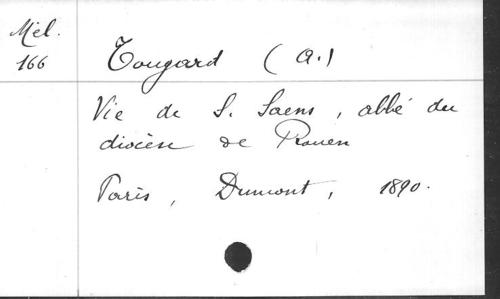 Mél.
166
Tougard (A.)
Vie de S. Saens, abbé du
diocèse de Rouen
Paris, Dumont, 1890.